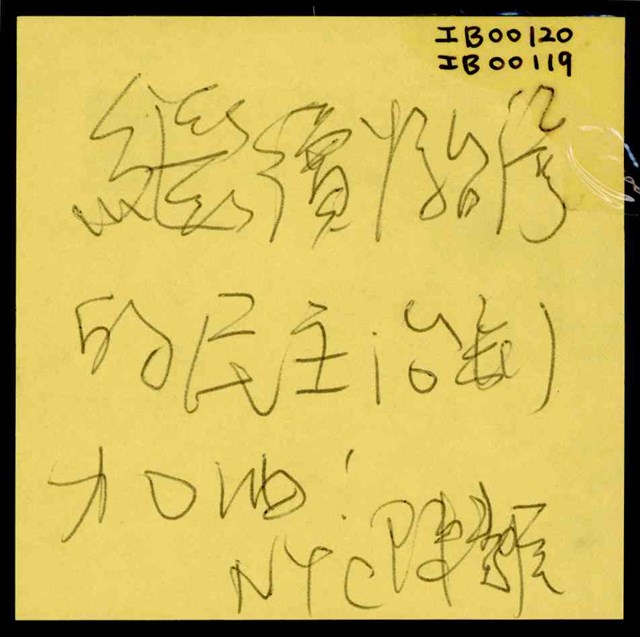 IB00120
IB00119
繼續怡
的民主治制
加油!
NYC 陳